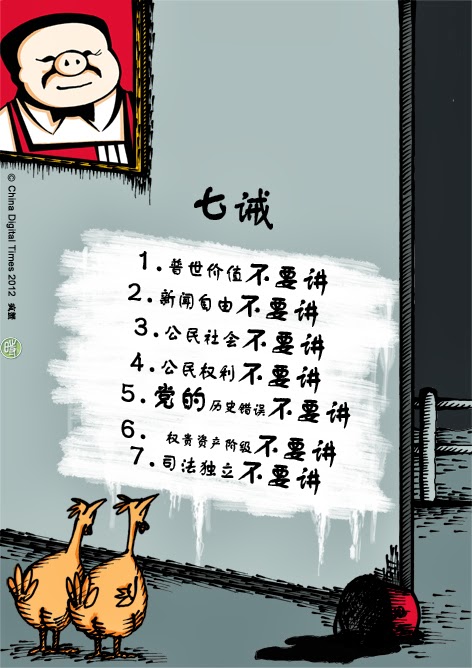 七诫
1.普世价值不要讲
2.新闻自由不要讲
3.公民社会不要讲
4.公民权利不要讲
5.党的历史错误不要讲
6.权贵资产阶级不要讲
7.司法独立不要讲
© China Digital Times 2012